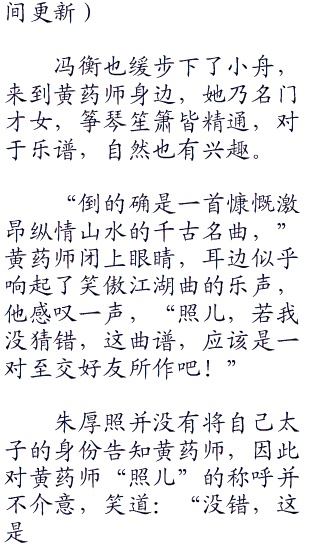 间更新）
冯衡也缓步下了小舟，
来到黄药师身边，她乃名门
才女，筝琴笙箫皆精通，对
于乐谱，自然也有兴趣。
“倒的确是一首慷慨激
昂纵情山水的千古名曲，”
黄药师闭上眼睛，耳边似乎
响起了笑傲江湖曲的乐声，
他感叹一声，“照儿，若我
没猜错，这曲谱，应该是一
对至交好友所作吧！”
朱厚照并没有将自己太
子的身份告知黄药师，因此
对黄药师“照儿”的称呼并
不介意，笑道：“没错，这
是